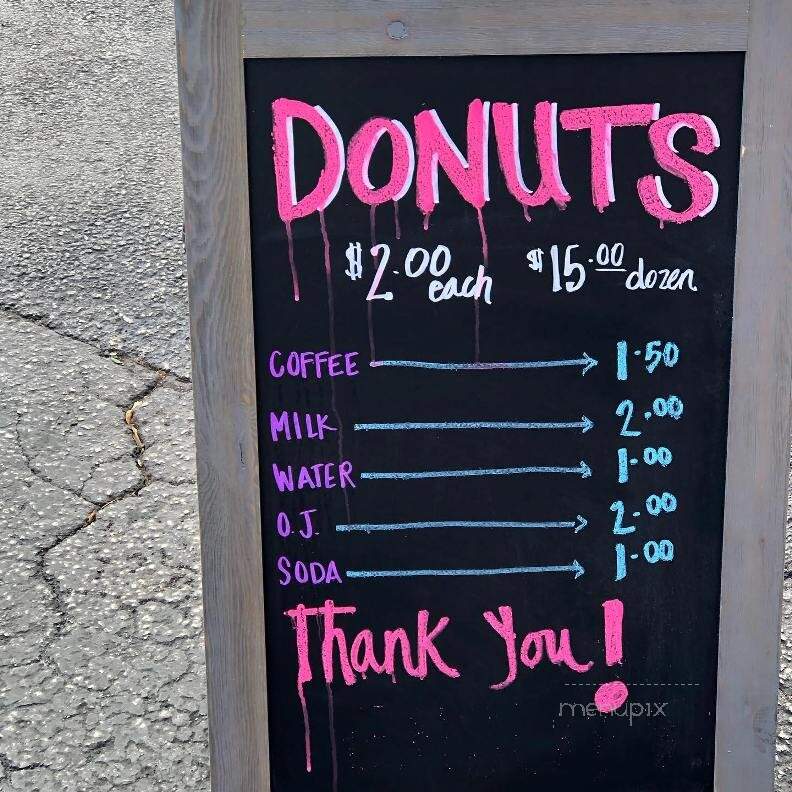 DONUTS
$2.00 each $15.00 dozen
COFFEE 1.50
MILK 2.00
WATER 1.00
O.J. 2.00
SODA 1.00
Thank you!
menupix